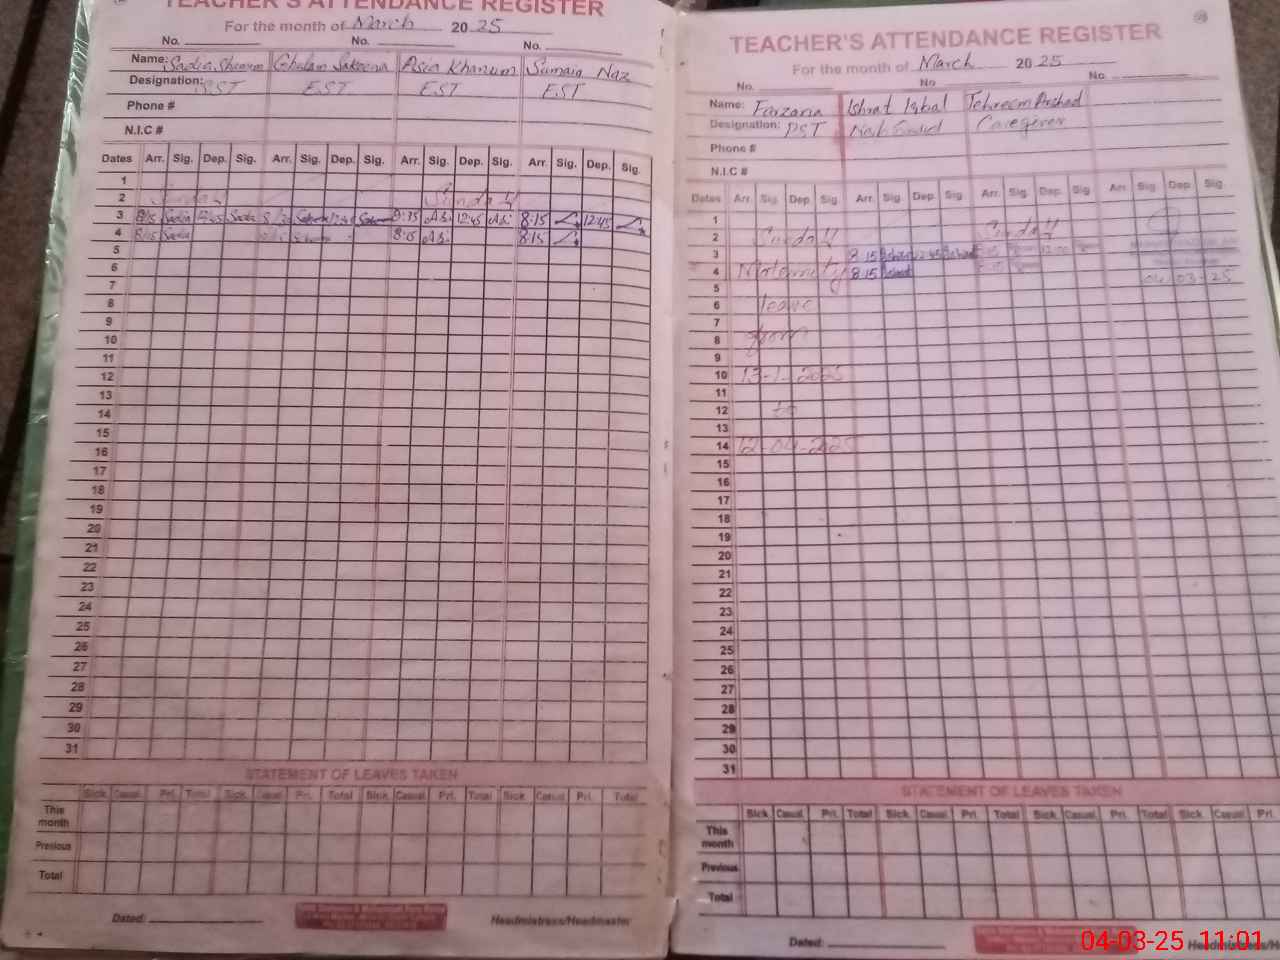 TEACHER'S ATTENDANCE REGISTER
For the month of March 2025
No. No. No.
Name: Sadia Shareem Ghulam Sakeena Asia Khanum Sumaia Naz
Designation: EST EST EST
Phone #
N.I.C #
Dates Arr. Sig. Dep. Sig. Arr. Sig. Dep. Sig. Arr. Sig. Dep. Sig. Arr. Sig. Dep. Sig.
1
2 Sunday Sunday
3 8/15 Sadia 12:45 Sadia 12:45 8:15 12:45 8:15 12:45
4 8/15 Sadia 8:15 8:15
5
6
7
8
9
10
11
12
13
14
15
16
17
18
19
20
21
22
23
24
25
26
27
28
29
30
31
STATEMENT OF LEAVES TAKEN
Sick. Casual. Pri. Total Sick. Casual. Pri. Total Sick. Casual. Pri. Total Sick. Casual. Pri. Total
This month
Previous
Total
Dated: Headmistress/Headmaster
TEACHER'S ATTENDANCE REGISTER
For the month of March 2025
No. No No.
Name: Farzana Ishrat Iqbal Tehreem Arshad
Designation: PST Naib Caregiver
Phone #
N.I.C #
Dates Arr. Sig. Dep. Sig. Arr. Sig. Dep. Sig. Arr. Sig. Dep. Sig Arr. Sig. Dep. Sig.
1
2 Sunday Sunday
3 8:15 Ishrat 12:45 Ishrat
4 Maternity 8:15 Ishrat 04-03-25
5
6 leave
7
8 from
9
10 13-1-2025
11
12 to
13
14 12-04-2025
15
16
17
18
19
20
21
22
23
24
25
26
27
28
29
30
31
STATEMENT OF LEAVES TAKEN
Sick. Casual. Pri. Total Sick. Casual. Pri. Total Sick. Casual. Pri. Total Sick. Casual. Pri.
This month
Previous
Total
Dated: Headmistress/H
04-03-25 11:01